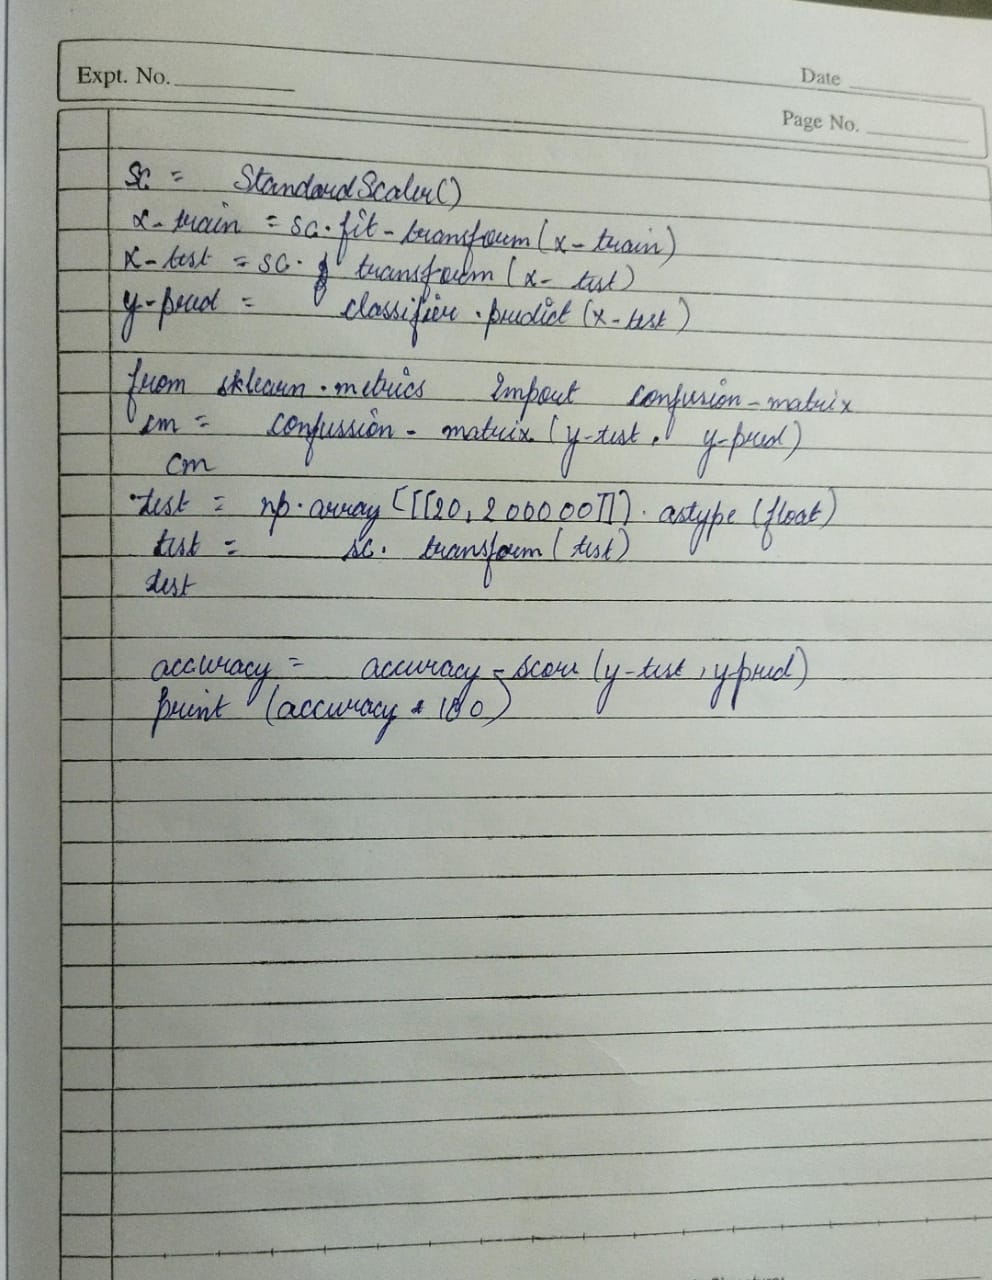 Expt. No.
Date
Page No.
Sc = StandardScaler()
x-train = sc.fit-transform(x-train)
x-test = sc. transform(x-test)
y-pred = classifier.predict(x-test)
from sklearn.metrics Import confusion-matrix
cm = confussion-matrix(y-test, y-pred)
cm
test = np.array([[20, 200000]]).astype(float)
test = sc. transform(test)
test
accuracy = accuracy-score(y-test, y pred)
print (accuracy * 100)